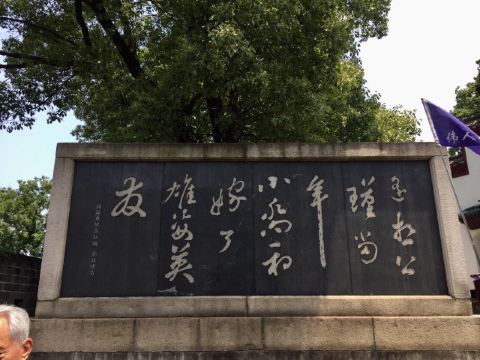 遥想公
瑾当
年
小乔初
嫁了
雄姿英
发
伟人